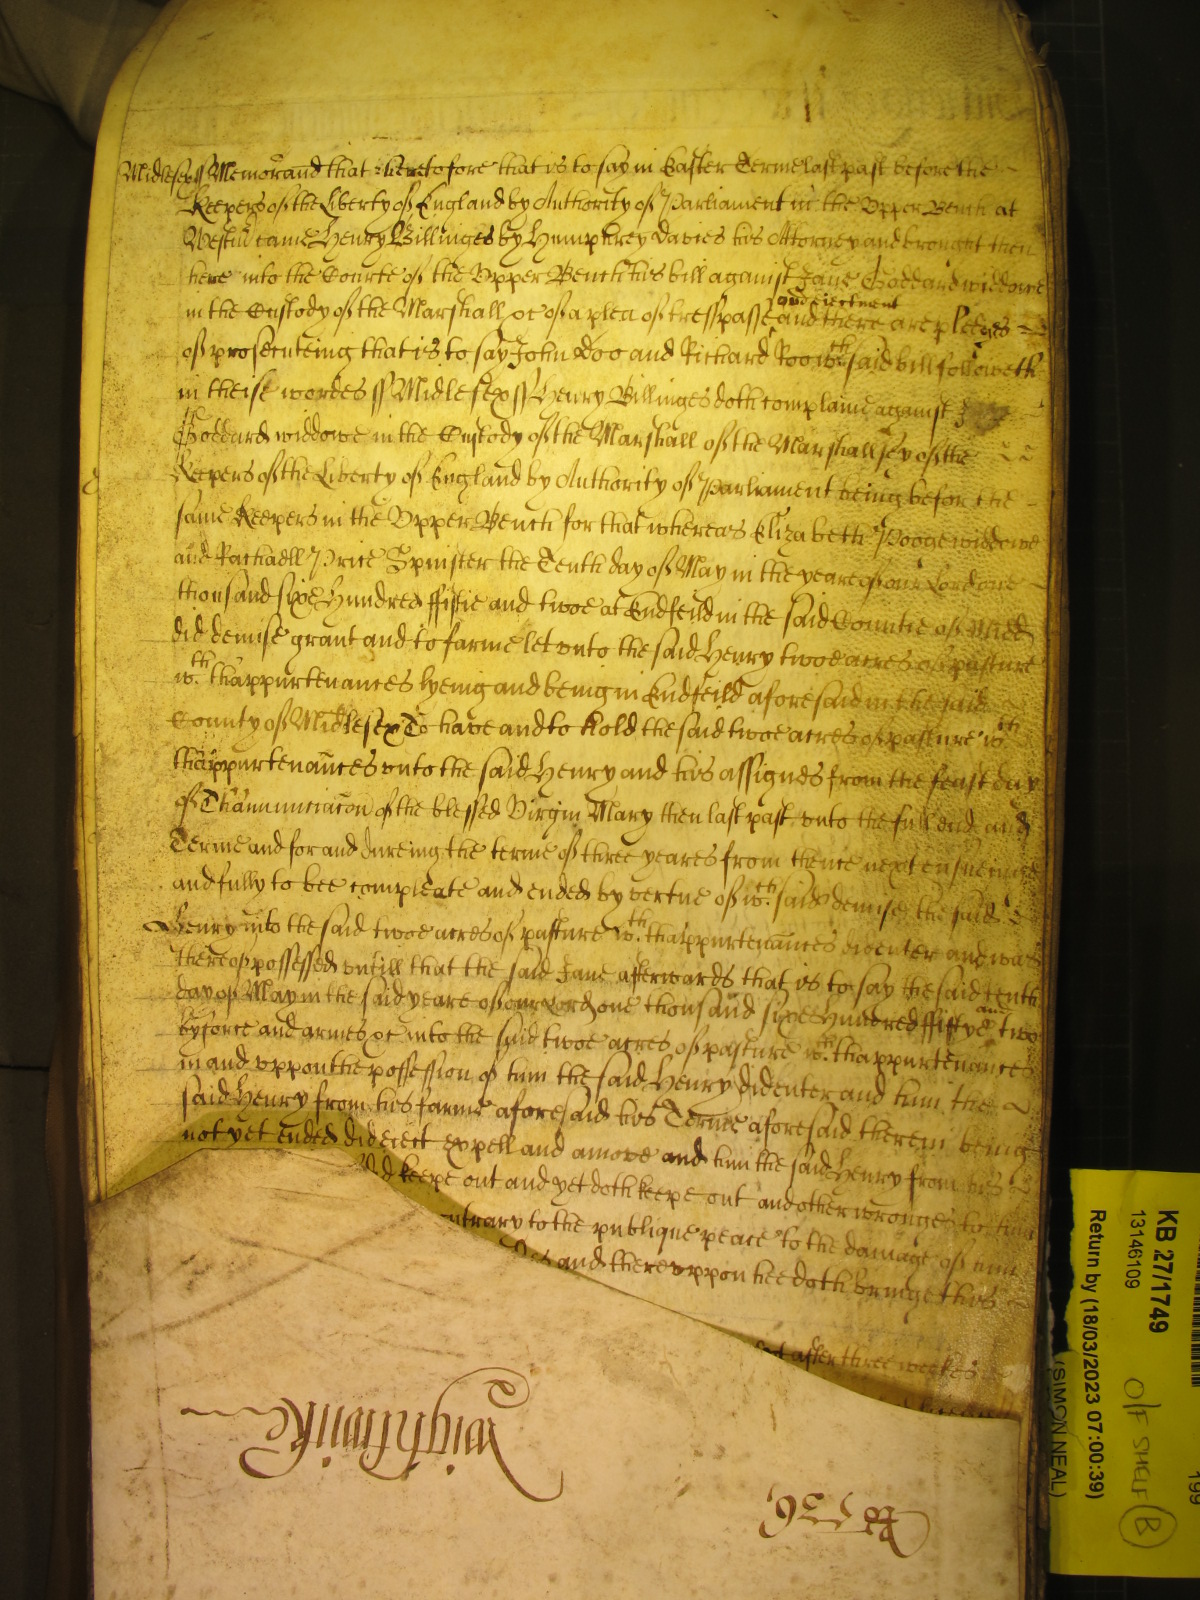 Midlesex ss Memorand that heretofore that is to say in Easter Terme last past before the
Keepers of the Liberty of England by Authority of Parliament in the Upper Bench at
Westm came Henry Billinges by Humphrey Davies his Attorney and brought then
here into the Courte of the Upper Bench his bill against Jane Goddard widdowe
in the Custody of the Marshall &c of a plea of tresspasse and eiectment and there are pledges
of prosecuteing that is to say John Doo and Richard Roo wch said bill followeth
in theise wordes ss Midlesex ss Henry Billinges doth complaine against
Goddard widdowe in the Custody of the Marshall of the Marshallsey of the
Keepers of the Liberty of England by Authority of Parliament being before the
same Keepers in the Upper Bench for that whereas Elizabeth Poole widdowe
and Rachaell Price Spinster the Tenth day of May in the yeare of our Lord one
thousand sixe Hundred fiftie and twoe at Endfeild in the said Countie of Midd
did demise grant and to farme let unto the said Henry twoe acres of pasture
wth thappurtenances lyeing and being in Endfeild aforesaid in the said
County of Midlesex To have and to hold the said twoe acres of pasture wth
thappurtenances unto the said Henry and his assignes from the feast day
of Thannunciacon of the blessed Virgin Mary then last past unto the full end and
Terme and for and dureing the terme of three yeares from thence next ensueinge
and fully to bee compleate and ended by vertue of wch said demise the said
Henry into the said twoe acres of pasture wth thappurtenances did enter and was
thereof possessed untill that the said Jane afterwards that is to say the said tenth
day of May in the said yeare of our Lord one thousand sixe Hundred fiftye and two
by force and armes &c into the said twoe acres of pasture wth thappurtenances
in and uppon the possession of him the said Henry did enter and him the
said Henry from his farme aforesaid his Terme aforesaid therein being
not yet ended did eiect expell and amove and him the said Henry from his
keepe out and yet doth keepe out and other wronges to him
to the publique peace to the damage of him
and thereuppon hee doth bringe this
after three weekes
Wightwicke
KB 27/1749
13146109
Return by (18/03/2023 07:00:39)
(SIMON NEAL)
O/F SHELF B
199